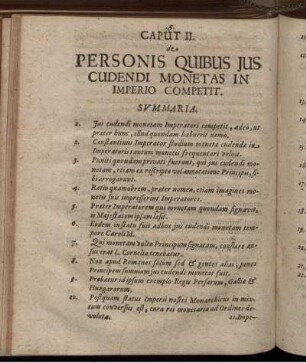 CAPUT II.
de
PERSONIS QUIBUS JUS
CUDENDI MONETAS IN
IMPERIO COMPETIT.
SVMMARIA.
1. Jus cudendi monetam Imperatori competit, adeò, ut
præter hunc, illud quondam habuerit nemo,
2. Constantinus Imperator studium moneta cudenda in
Imperatoris tantum monetis frequentari voluit.
3. Puniti quondam privati fuerunt, qui jus cudendi mo-
netam, etiam ex rescripto vel annotatione Principis, si-
bi arrogarunt.
4. Ratio quamobrem, præter nomen, etiam imagines mone-
tis suis impresserint Imperatores.
5. Præter Imperatorem qui monetam quondam signavit,
is Majestatem ipsam læsit.
6. Eodem in statu fuit adhuc jus cudendi monetam tem-
pore Caroli M.
7. Qui monetam vultu Principum signatam, constare an-
sus erat L. Cornelia tenebatur.
8. Non apud Romanos solùm sed & gentes alias, penes
Principem summum jus cudendi monetæ fuit.
9. Probatur id ipsum exemplo Regis Persarum, Galliæ &
Hungarorum.
10. Postquam status Imperii nostri Monarchicus in mix-
tum conversus est, cura rei monetaria ad Ordines de-
volutæ.
11. Impe-